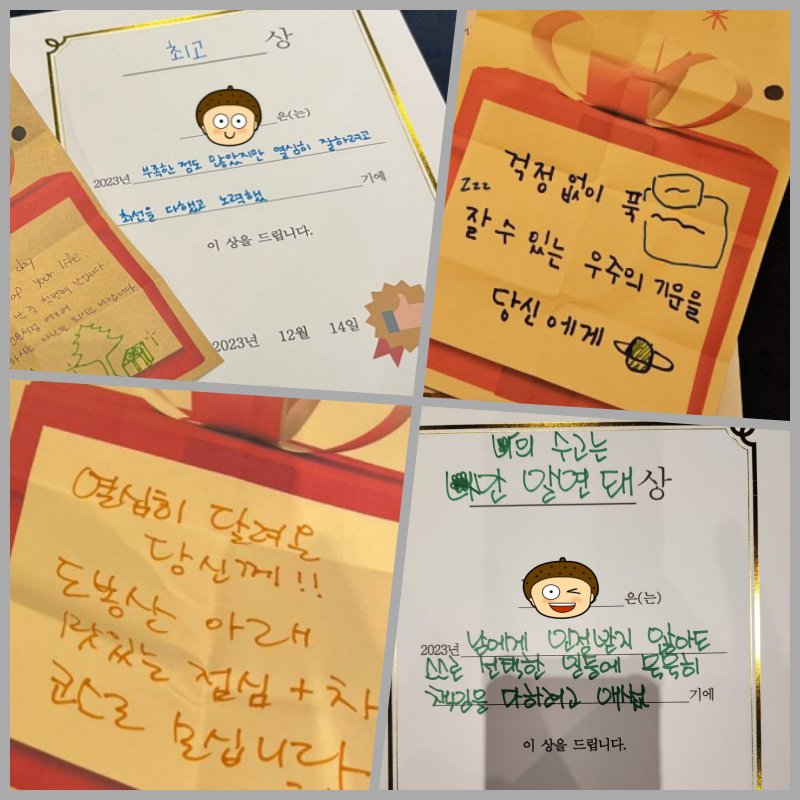 최고 상
은(는)
2023년 부족한 점도 많았지만 열심히 잘하려고
최선을 다했고 노력했 기에
이 상을 드립니다.
2023년 12월 14일
day
of your life
걱정 없이 푹
zzz
잘 수 있는 우주의 기운을
당신에게
열심히 달려온
당신께!!
도봉산 아래
맛있는 점심 + 차
코스로 모십니다
너의 수고는
너만 알면 돼 상
은(는)
2023년 남에게 인정받지 않아도
스스로 선택한 일들에 묵묵히
책임을 다하려고 애썼 기에
이 상을 드립니다.